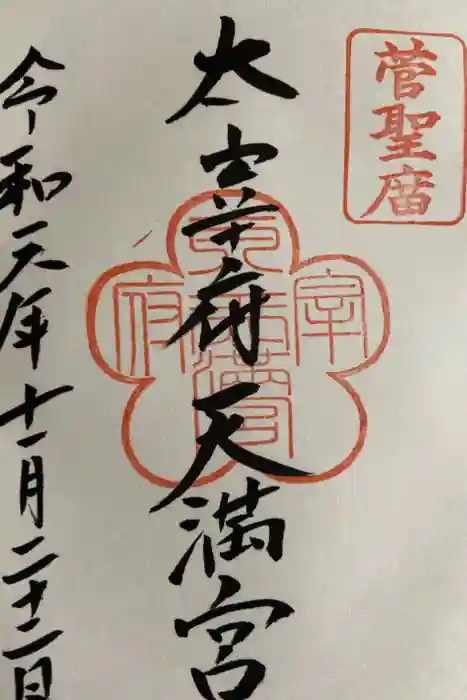 菅聖庿
太宰府天満宮
令和元年十一月二十二日